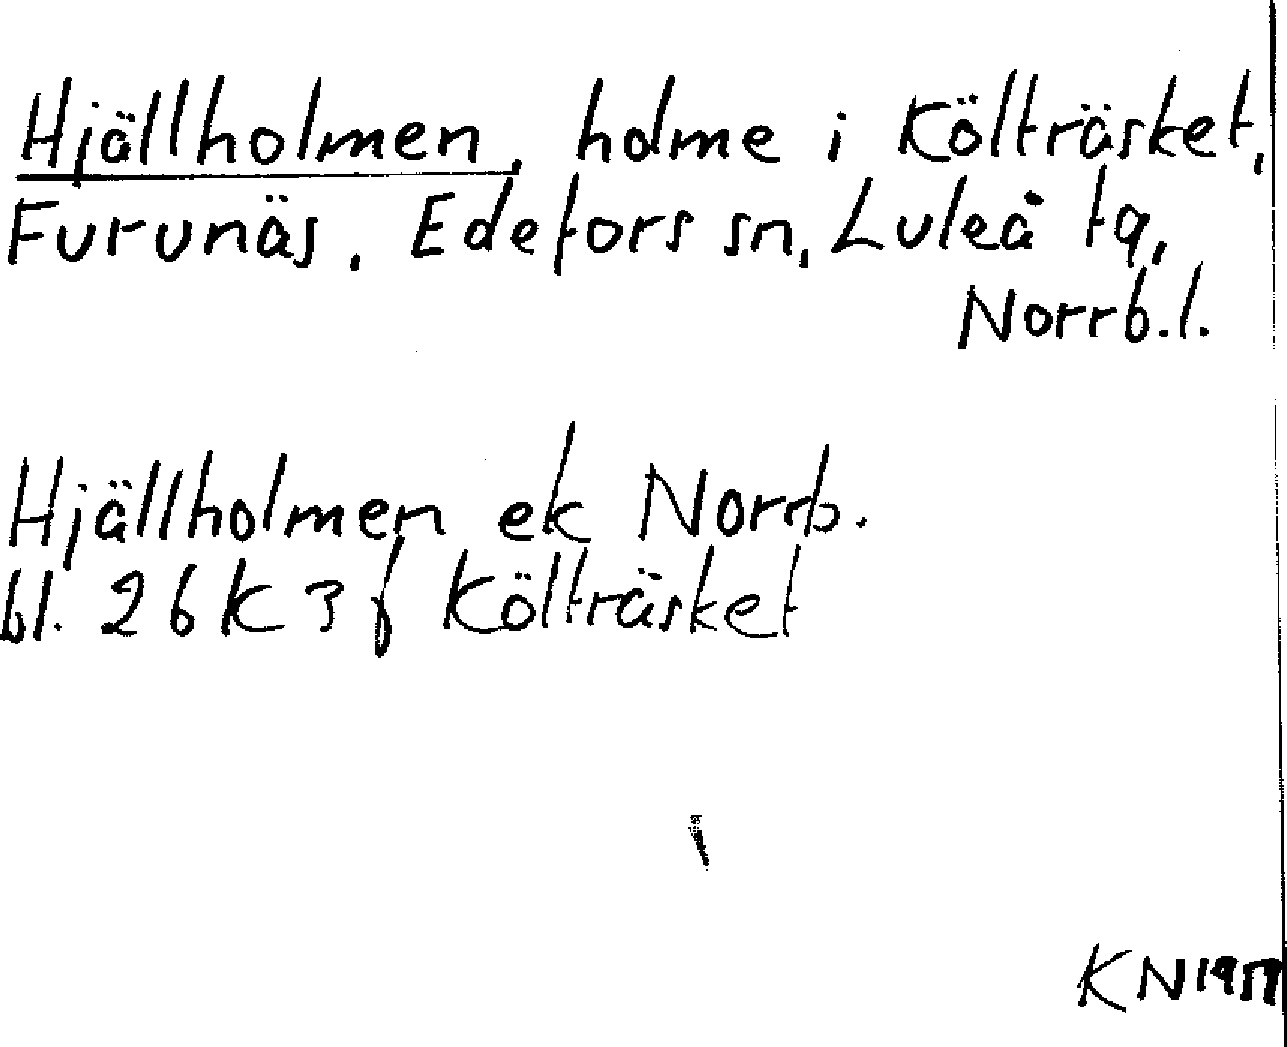 Hjällholmen, holme i Költräsket,
Furunäs, Edefors sn, Luleå tg,
Norrb.l.
Hjällholmen ek Norrb.
bl. 26 K 3 f Költräsket
KN